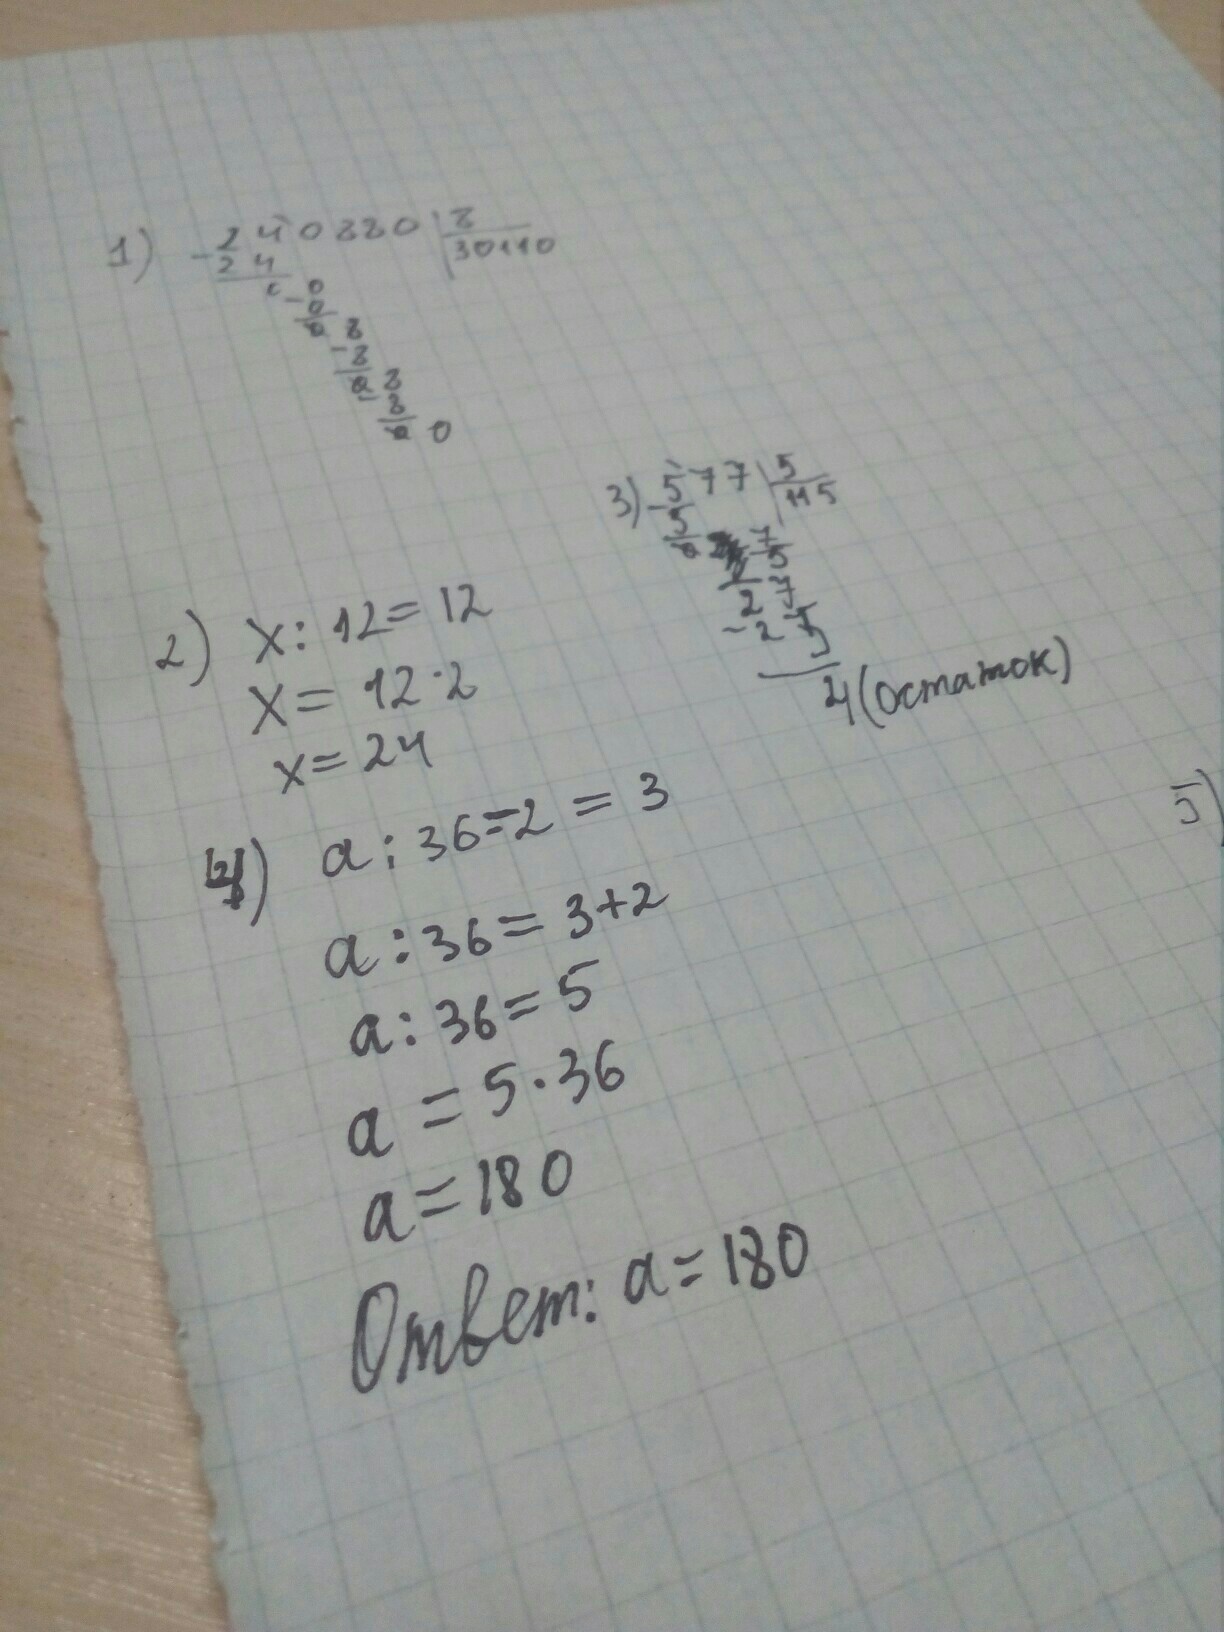 1) - 240880 | 8
24 30110
0 0
- 0
0 8
- 8
0 8
- 8
0 0
3) - 577 | 5
5 115
0 7
5
2 7
- 2 5
2 (остаток)
2) x : 12 = 12
x = 12 · 2
x = 24
4) a : 36 - 2 = 3
a : 36 = 3 + 2
a : 36 = 5
a = 5 · 36
a = 180
Ответ: a = 180
5)